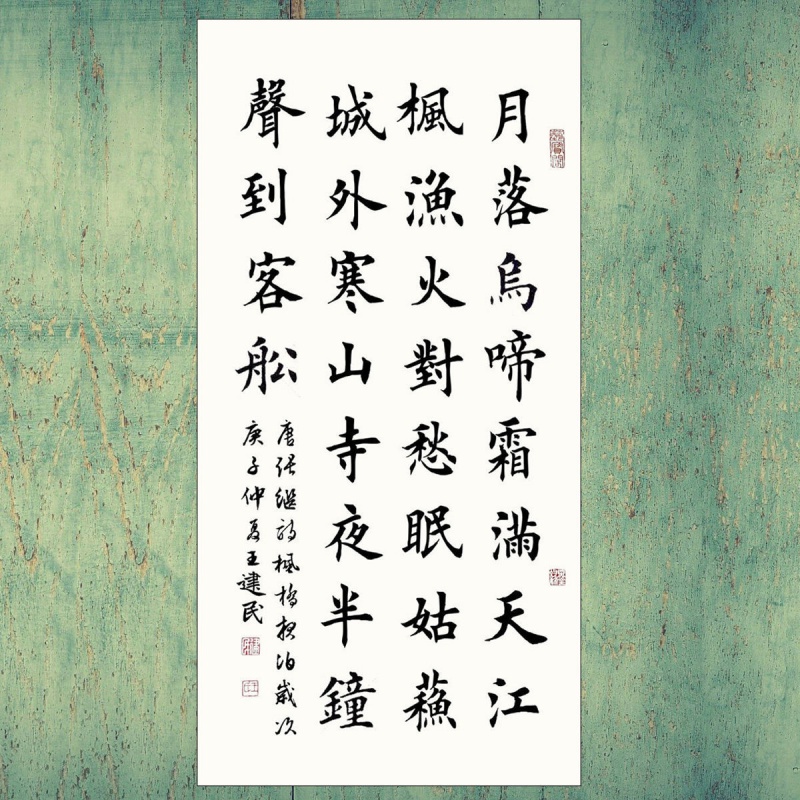 月落烏啼霜滿天江
楓漁火對愁眠姑蘓
城外寒山寺夜半鐘
聲到客船
唐張繼詩楓橋夜泊歲次
庚子仲夏王建民